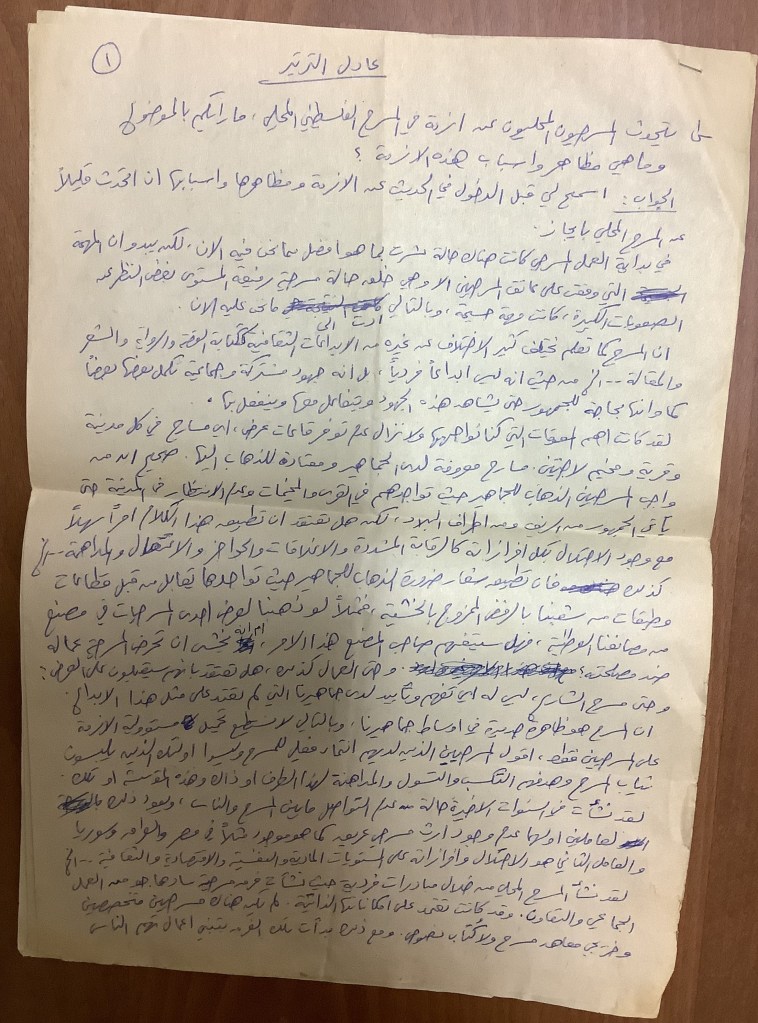 ١
عادل الترتير
كما يتحدث المسرحيون المحليون عن ازمة في المسرح الفلسطيني المحلي، ما رأيكم بالموضوع
وما هي مظاهر واسباب هذه الازمة ؟
الجواب: اسمح لي قبل الدخول في الحديث عن الازمة ومظاهرها واسبابها ان اتحدث قليلاً
عن المسرح المحلي بايجاز.
في بداية العمل المسرحي كانت هناك حالة بشرت بما هو افضل مما نحن فيه الان، لكن يبدو ان المهمة
التي وقعت على عاتق المسرحيين الا وهي خلق حالة مسرحية رفيعة المستوى بغض النظر عن
الصعوبات الكبيرة، كانت مهمة جسيمة، وبالتالي ادت الى ما نحن عليه الان.
ان المسرح كما تعلم يختلف كثير الاختلاف عن غيره من الابداعات الثقافية ككتابة القصة والرواية والشعر
والمقالة -- الخ من حيث انه ليس ابداعاً فردياً، بل انه جهود مشتركة وجماعية تكمل بعضها بعضاً
كما وانها بحاجة للجمهور حتى يشاهد هذه الجهود ويتفاعل معها وينفعل بها.
لقد كانت اهم المعوقات التي كنا نواجهها ولا نزال عدم توفر قاعات عرض، اي مسارح في كل مدينة
وقرية ومخيم لاجئين. مسارح معروفة لدى الجماهير ومعتادة للذهاب اليها. صحيح انه من
واجب المسرحيين الذهاب للجماهير حيث تواجدهم في القرى والمخيمات وعدم الانتظار في المدينة حتى
يأتي الجمهور من الريف ومن اطراف البلاد، لكن هل تعتقد ان تطبيق هذا الكلام امراً سهلاً
مع وجود الاحتلال بكل افرازاته كالرقابة المشددة والاغلاقات والحواجز والاعتقال والمداهمة -- الخ
كذلك فان تطبيق شعار ضرورة الذهاب للجماهير حيث تواجدها تقابل من قبل قطاعات
وطبقات من شعبنا بالرفض الممزوج بالخشية، فمثلاً لو ذهبنا لعرض احدى المسرحيات في مصنع
من مصانعنا الوطنية، فهل سيتفهم صاحب المصنع هذا الامر، ام انه يخشى ان تحرض المسرحية عماله
ضد مصلحته؟ وحتى العمال كذلك، هل تعتقد بانهم سيقبلون على العرض؟
وحتى مسرح الشارع، ليس له اي تفهم وتأييد لدى جماهيرنا التي لم تعتد على مثل هذا الابداع.
ان المسرح هو ظاهرة جديدة في اوساط جماهيرنا، وبالتالي لا نستطيع تحميل مسؤولية الازمة
على المسرحيين فقط، اقول المسرحيين الذين لديهم انتماء فعلي للمسرح وليسوا اولئك الذين يلبسون
ثياب المسرح وهدفهم التكسب والتسول والمداهنة لهذا الطرف او ذاك وهذه المؤسسة او تلك.
لقد نشأت في السنوات الاخيرة حالة من عدم التواصل ما بين المسرح والناس، ويعود ذلك
لعاملين اولهما عدم وجود ارث مسرحي عريق كما هو موجود مثلاً في مصر والعراق وسوريا
والعامل الثاني هو الاحتلال وافرازاته على المستويات المادية والنفسية والاقتصادية والثقافية -- الخ
لقد نشأ المسرح المحلي من خلال مبادرات فردية حيث نشأت فرق مسرحية سادها جو من العمل
الجماعي والتعاون. وقد كانت تعتمد على امكاناتها الذاتية. لم يكن هناك مسرحيين متخصصين
وخريجي معاهد مسرح ولا كتّاب نصوص. ومع ذلك بدأت تلك الفرق بتبني اعمال تهم الناس